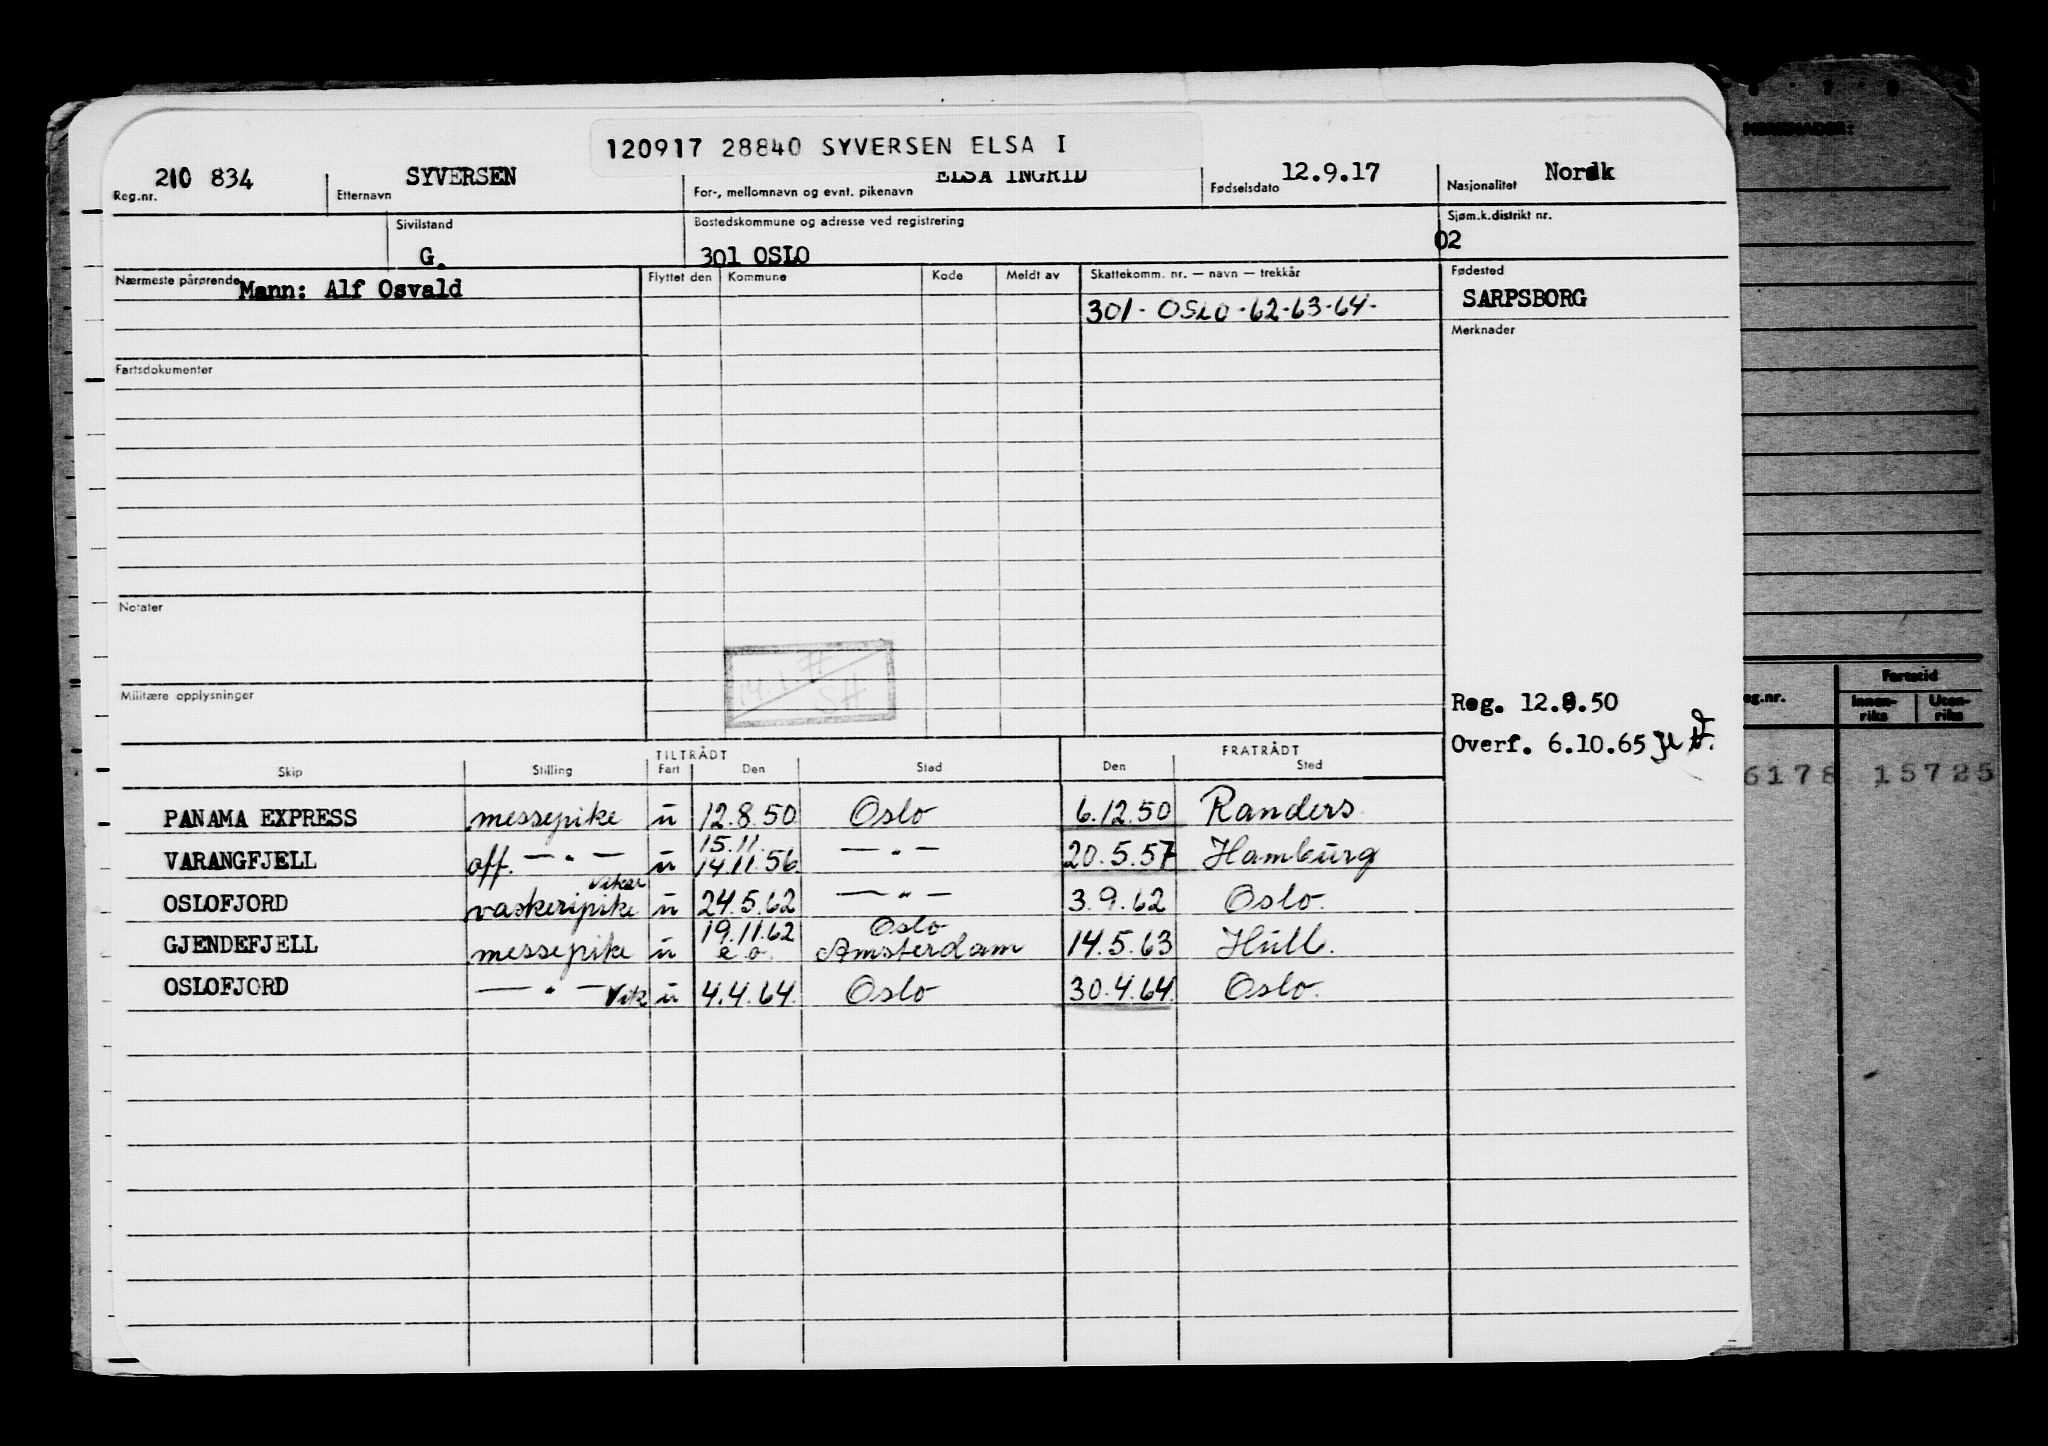 120917 28840 SYVERSEN ELSA I
Reg.nr. 210 834 Etternavn SYVERSEN For-, mellomnavn og evnt. pikenavn ELSA INGRID Fødselsdato 12.9.17 Nasjonalitet Norsk
Sivilstand G. Bostedskommune og adresse ved registrering 301 OSLO Sjøm.k.distrikt nr. 02
Nærmeste pårørende Mann: Alf Osvald Flyttet den Kommune Kode Meldt av Skattekomm. nr. — navn — trekkår Fødested
301 - OSLO - 62-63-64- SARPSBORG
Merknader
Fartsdokumenter
Notater
14.1.71
SH
Militære opplysninger
Reg. 12.8.50
Overf. 6.10.65
TILTRÅDT FRATRÅDT
Skip Stilling Fart Den Sted Den Sted
PANAMA EXPRESS messepike u 12.8.50 Oslo 6.12.50 Randers
15.11.
VARANGFJELL off. — " — u 14.11.56 — " — 20.5.57 Hamburg
vikar
OSLOFJORD vaskeripike u 24.5.62 — " — 3.9.62 Oslo.
19.11.62 Oslo
GJENDEFJELL messepike u e.o. Amsterdam 14.5.63 Hull.
OSLOFJORD — " — Vik u 4.4.64 Oslo 30.4.64 Oslo.
MERKNADER:
eg.nr. Fartstid
Innen-riks Uten-riks
6178 15725